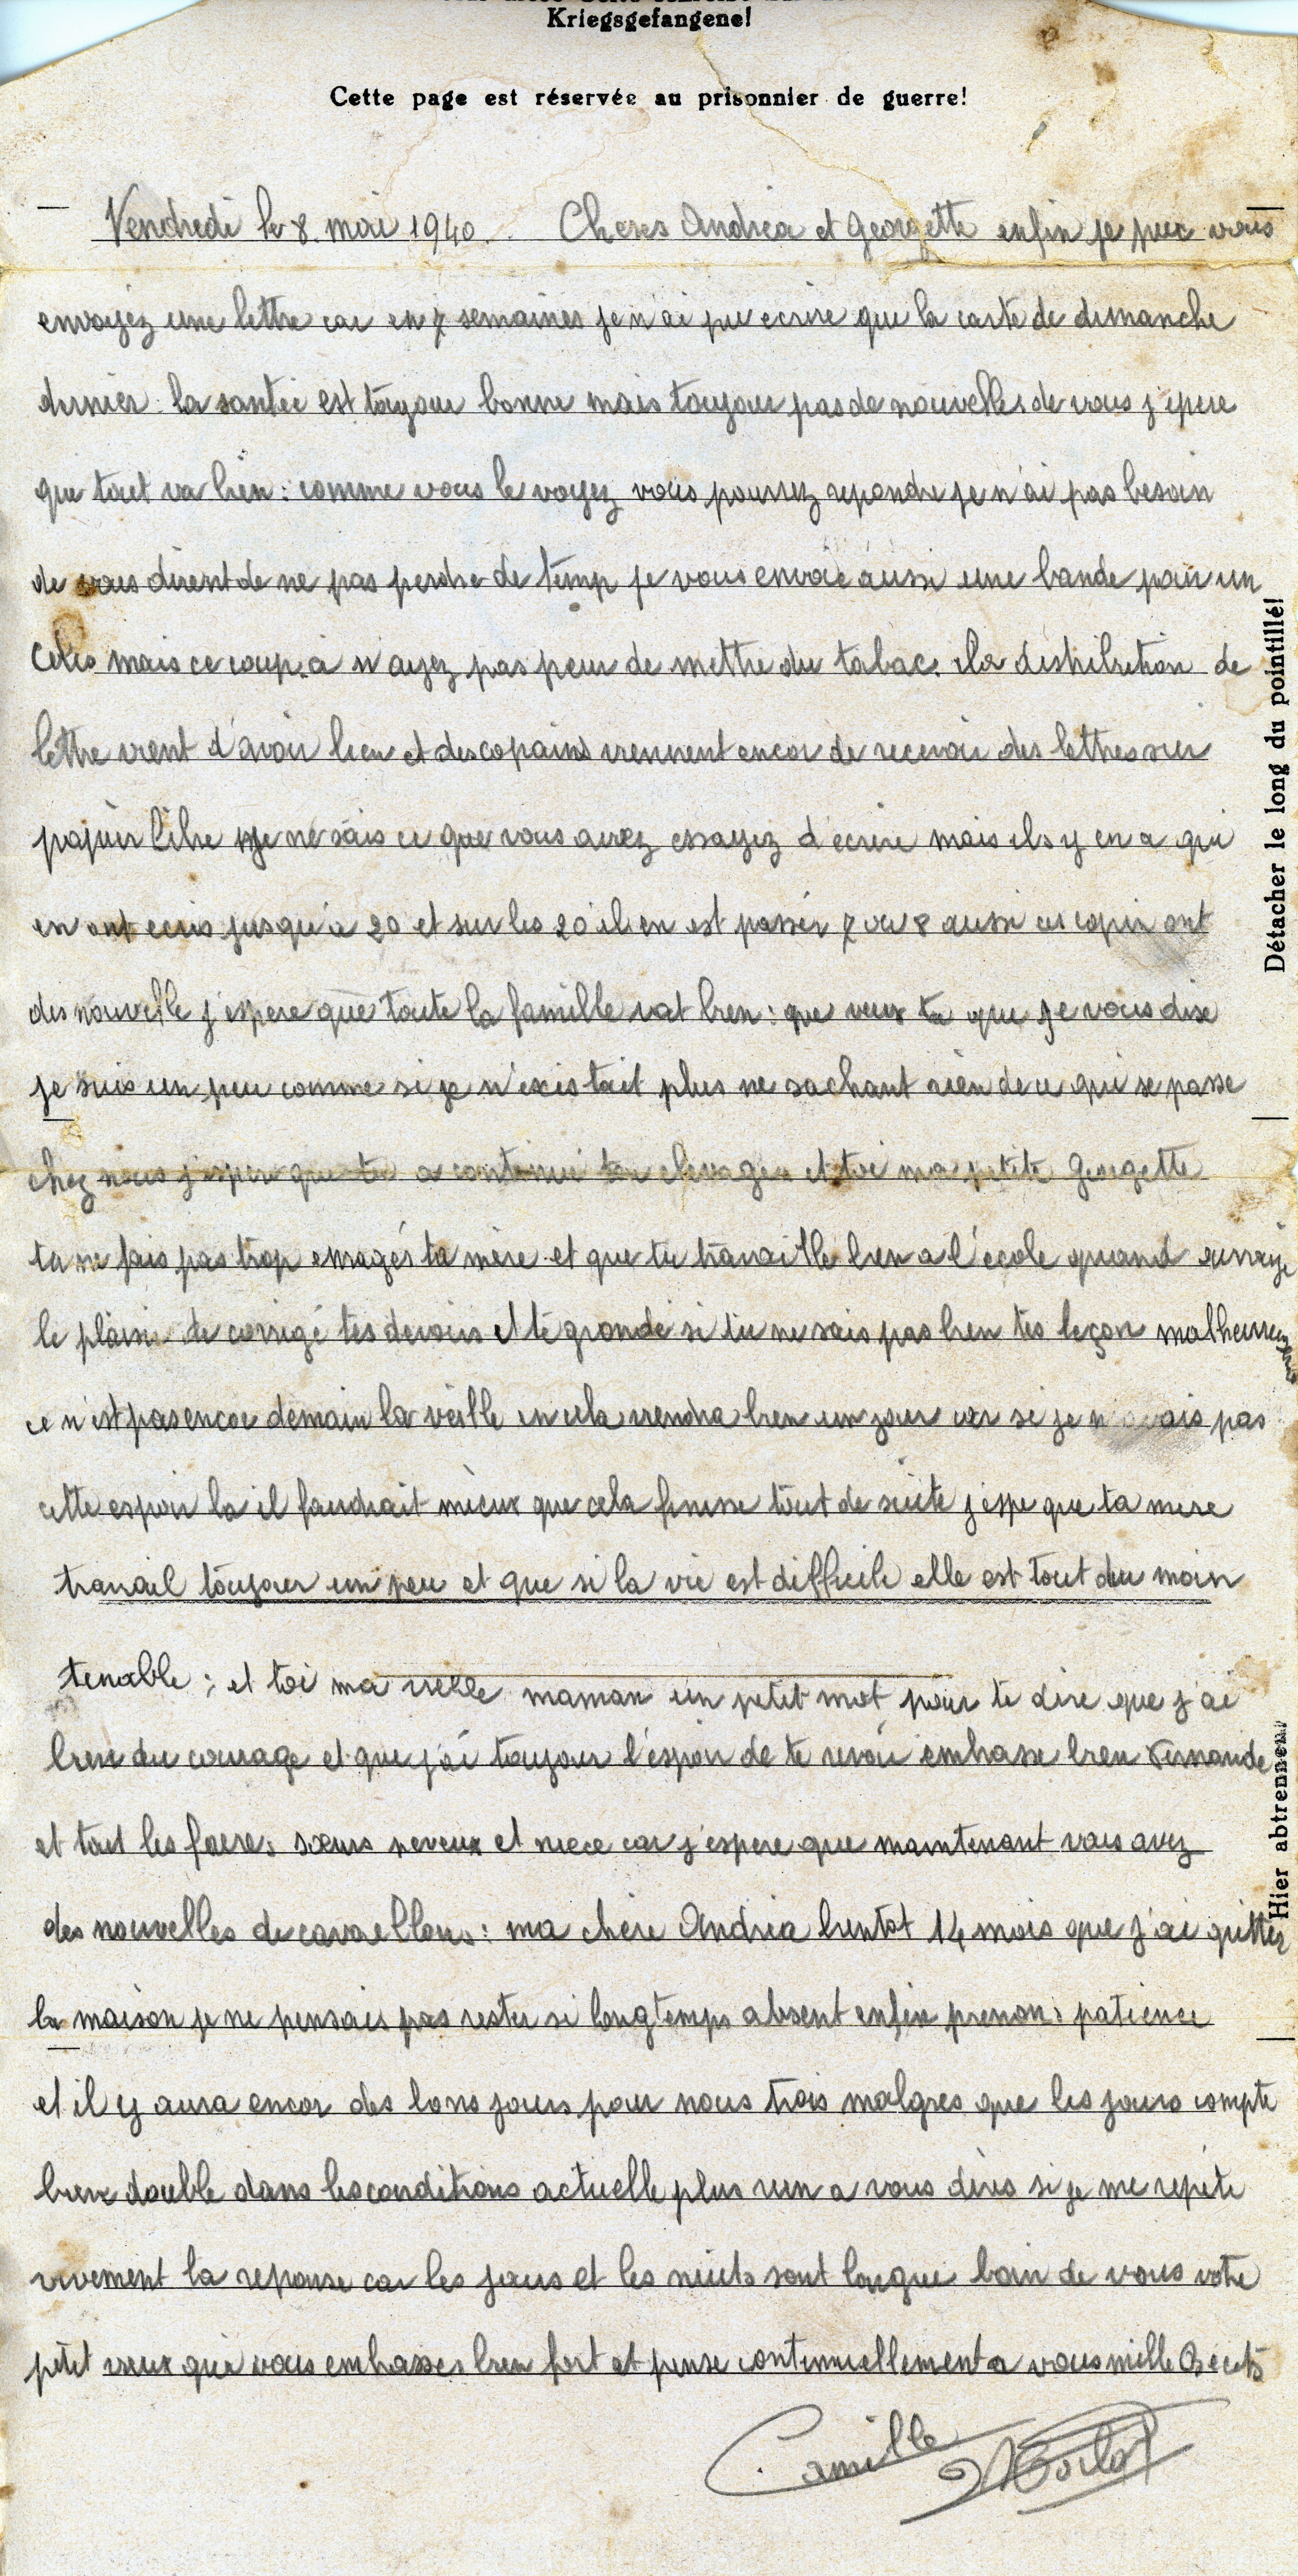 Kriegsgefangene!
Cette page est réservée au prisonnier de guerre!
Vendredi le 8. mai 1940. Cheres Andrea et Georgette enfin je peux vous
envoyez une lettre car en 7 semaines je n'ai pu ecrire que la carte de dimanche
dernier. la santée est toujour bonne mais toujour pas de nouvelles de vous j'epere
que tout va bien : comme vous le voyez vous pourrez repondre je n'ai pas besoin
de vous dirent de ne pas perdre de temp je vous envoie aussi une bande pour un
Colis mais ce coup.a n'ayez pas peur de mettre du tabac. la distribution de
lettre vient d'avoir lieu et des copains viennent encor de recevoir des lettres sur
papier libre je ne sais ce que vous avez essayez d'ecrire mais ils y en a qui
en ont ecris jusqu'a 20 et sur les 20 il en est passer 7 ou 8 aussi ces copin ont
des nouvelle j'espere que toute la famille vat bien : que veux tu que je vous dise
je suis un peu comme si je n'existait plus ne sachant rien de ce qui se passe
chez nous j'esper que tu a continué ton elevage et toi ma petite Georgette
tu ne fais pas trop enragés ta mère et que tu travaille bien a l'école quand aurraije
le plaisir de corrigé tes devoirs et te grondé si tu ne sais pas bien tes leçon malheureusement
ce n'est pas encor demain la veille en cela viendra bien un jour car si je n'avais pas
cette espoir la il faudrait mieux que cela finisse tout de suite j'espe que ta mere
travail toujour un peu et que si la vie est difficile elle est tout du moin
tenable ; et toi ma vielle maman un petit mot pour te dire que j'ai
bien du courage et que j'ai toujour l'espoir de te revoir embasse bien Fernande
et tout les frere, sœurs neveux et niece car j'espere que maintenant vous avez
des nouvelles de cavaillons : ma chère Andréa bientot 14 mois que j'ai quitter
la maison je ne pensais pas rester si longtemps absent enfin prenons patience
et il y aura encor des bons jours pour nous trois malgres que les jours compte
bien double dans les conditions actuelle plus rien a vous dires si je me repéte
vivement la reponse car les jours et les nuits sont longue loin de vous votre
petit vieux qui vous embasses bien fort et pense continuellement a vous mille Becots
Camille
Détacher le long du pointillé!
Hier abtrennen!